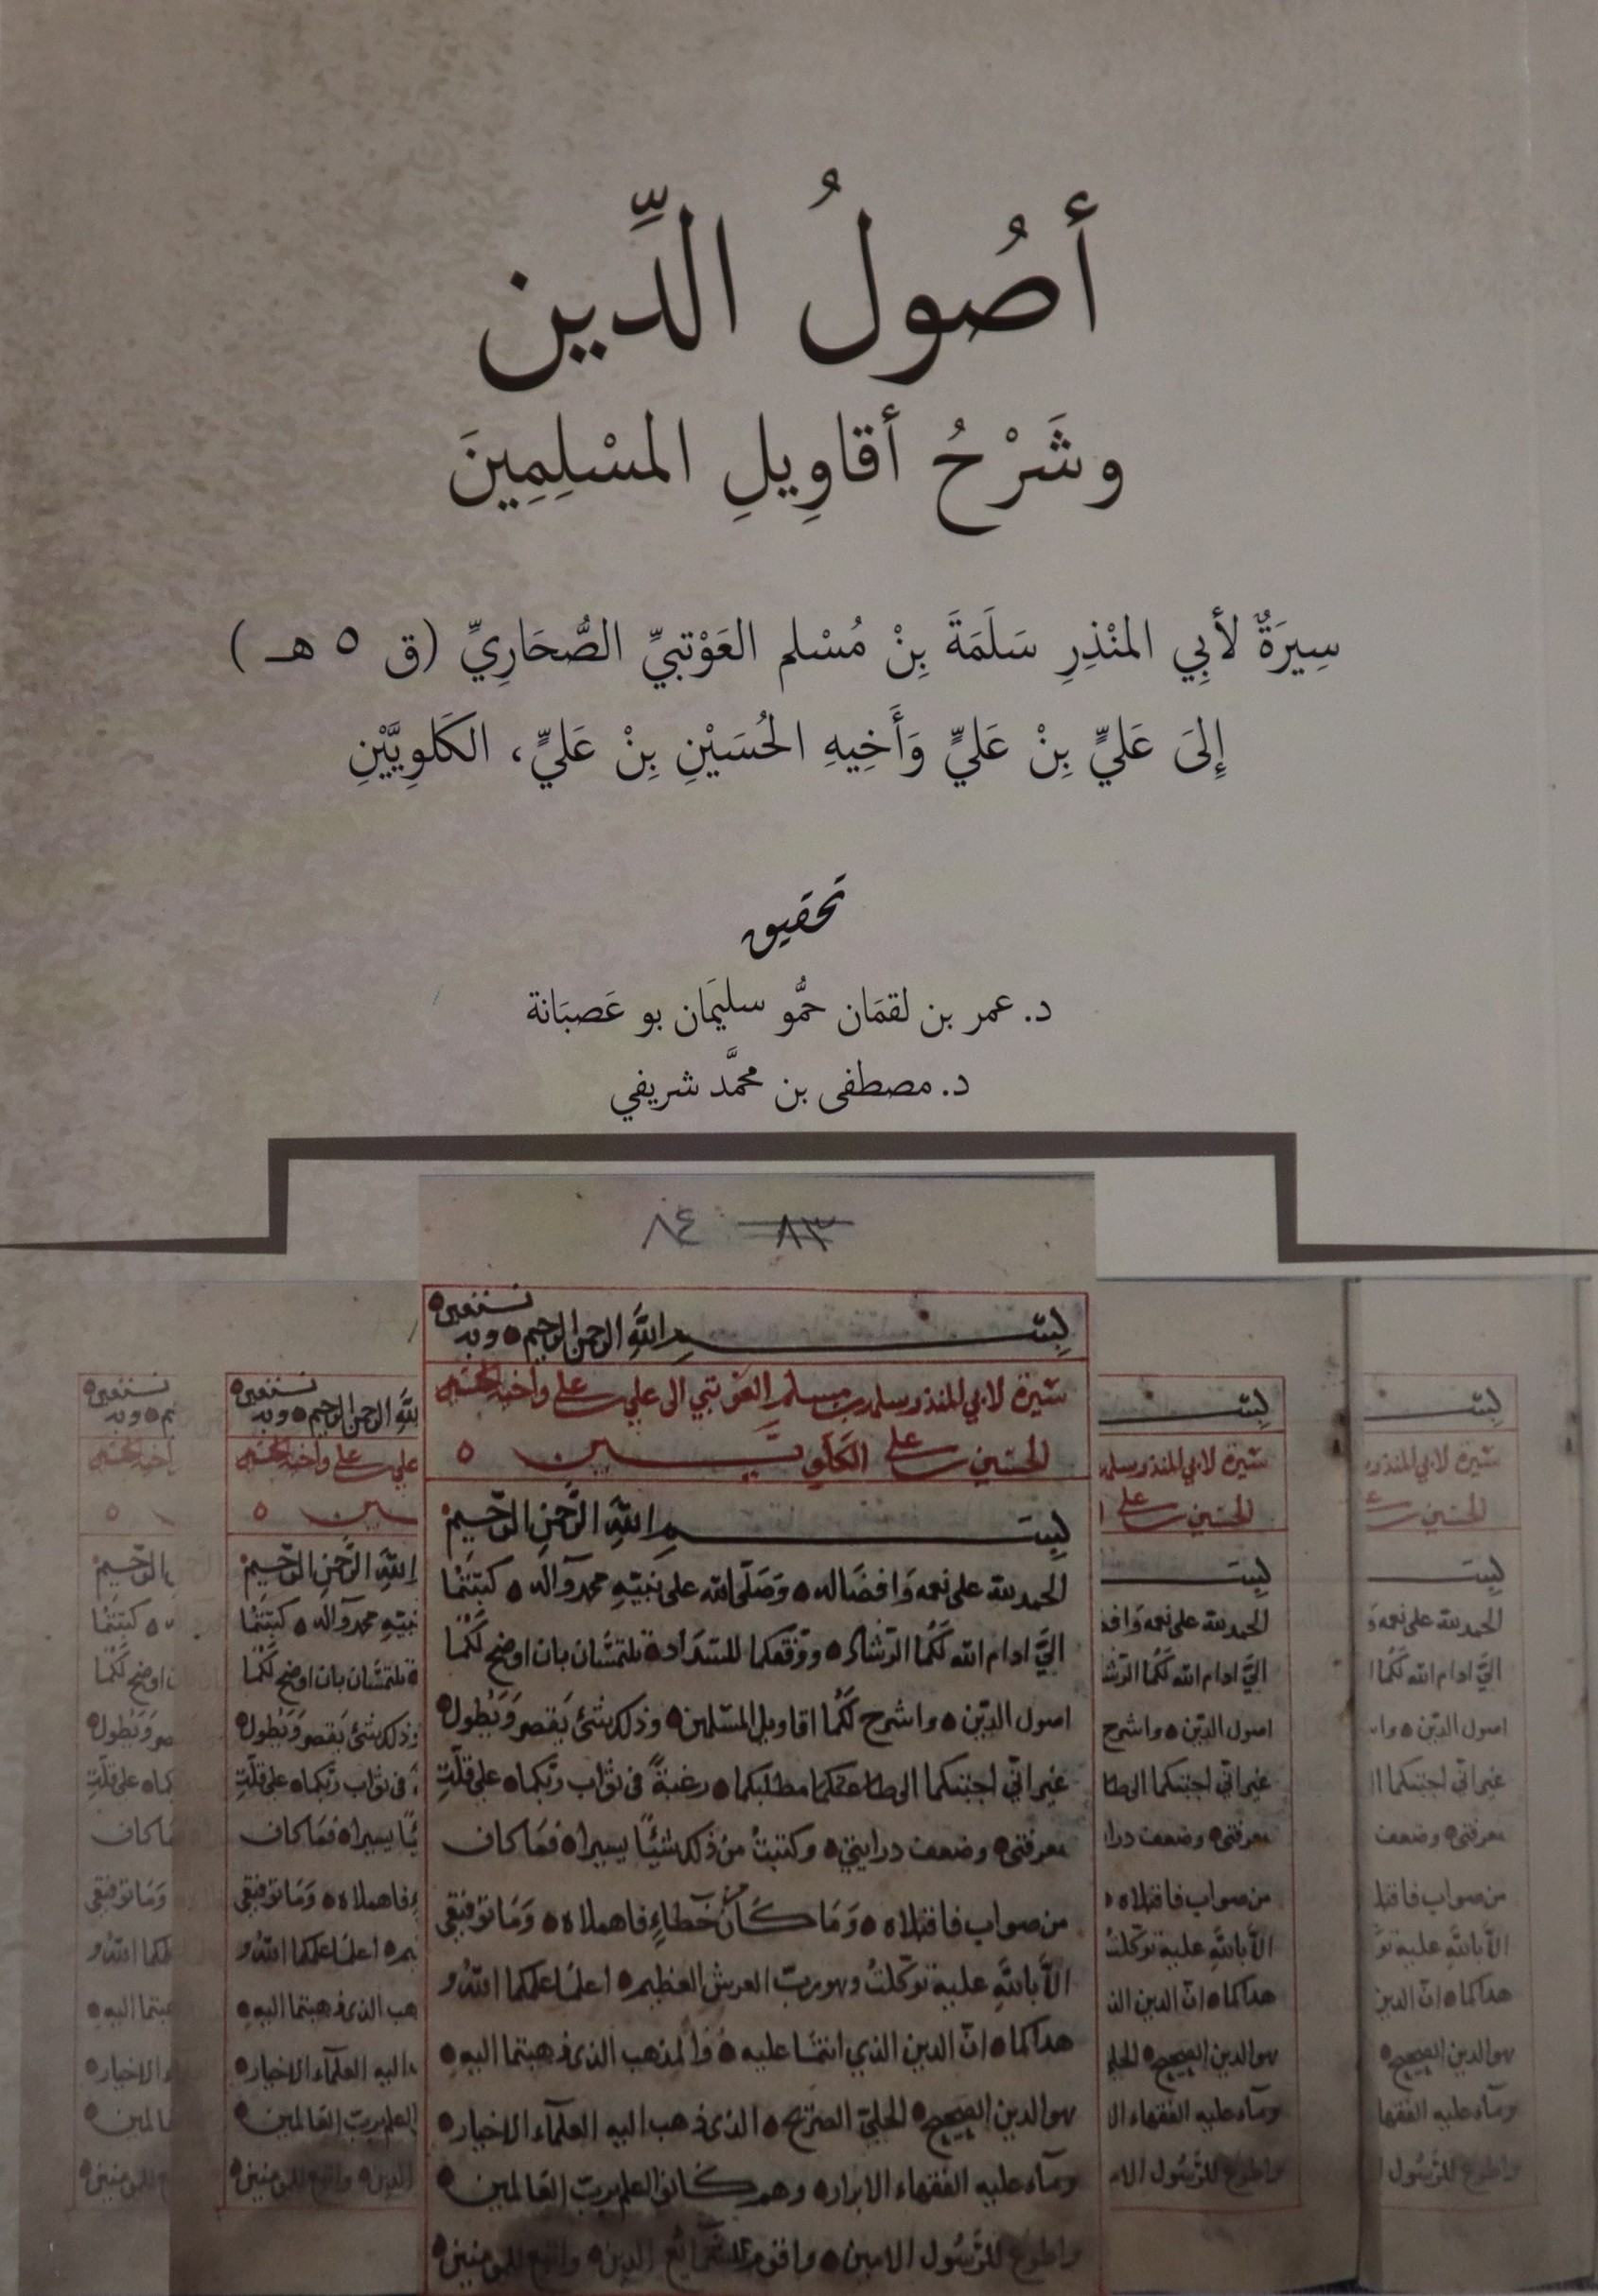 أصُولُ الدِّين
وشَرْحُ أقاوِيلِ المسْلِمِينَ
سِيرَةٌ لأبِي المنْذِرِ سَلَمَةَ بِنْ مُسْلم العَوْتبيِّ الصُّحَارِيِّ (ق ٥ هـ)
إِلىَ عَليٍّ بِنْ عَليٍّ وَأَخِيهِ الحُسَيْنِ بِنْ عَليٍّ، الكَلوِيَّيْنِ
تحقيق
د. عمر بن لقمَان حمُّو سليمَان بو عَصبَانة
د. مصطفى بن محمَّد شريفي
٨٣ ٨٤
بسم الله الرحمن الرحيم وبه نستعين
سيرة لابي المنذر سلمة بن مسلم العوتبي الى علي بن علي واخيه
الحسين بن علي الكلويين ٥
بسم الله الرحمن الرحيم
الحمد لله على نعمه وافضاله وصلى الله على نبيه محمد وآله كتبتما
اليّ ادام الله لكما الرشاد ووفقكما للسداد تلتمسان بان اوضح لكما
اصول الدين واشرح لكما اقاويل المسلمين وذلك شئ يقصر ويطول
غير اني اجبتكما الى مطلبكما رغبة في ثواب ربكما على قلة
معرفتي وضعف درايتي وكتبت من ذلك شيئًا يسيرا فما كان
من صواب فاقبلاه وما كان من خطاء فاهملاه وما توفيقي
الا بالله عليه توكلت وهو رب العرش العظيم اعلما علمكما الله و
هداكما ان الدين الذي انتما عليه والمذهب الذي ذهبتما اليه
هو الدين الصحيح الجلي الصريح الذي ذهب اليه العلماء الاخيار
وماء عليه الفقهاء الابرار وهم كانوا اعلم برب العالمين
واطوع للرسول الامين واقوم الدين واتبع للمومنين